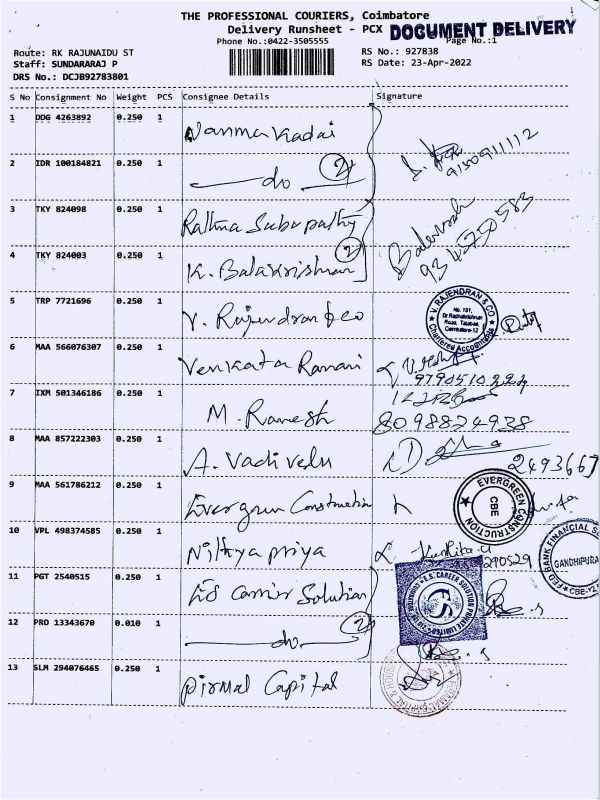 THE PROFESSIONAL COURIERS, Coimbatore
Delivery Runsheet - PCX
DOCUMENT DELIVERY
Phone No.:0422-3505555
Page No.:1
Route: RK RAJUNAIDU ST
RS No.: 927838
Staff: SUNDARARAJ P
RS Date: 23-Apr-2022
DRS No.: DCJB92783801
S No Consignment No Weight PCS Consignee Details Signature
1 DDG 4263892 0.250 1 Nanma Kadai
9150911112
2 IDR 100184821 0.250 1 do 2
3 TKY 824098 0.250 1 Rathna Sabapathy
4 TKY 824003 0.250 1 K. Balakrishnan 2
9345750583
5 TRP 7721696 0.250 1 V. Rajendran & co
V. RAJENDRAN & CO
No. 101,
Dr Radhakrishnan
Road, Tatabad,
Coimbatore-12
Chartered Accountants
6 MAA 566076307 0.250 1 Venkata Ramani
9790510224
7 IXM 501346186 0.250 1 M. Ramesh
8098824938
8 MAA 857222303 0.250 1 A. Vadivelu
2493667
9 MAA 561786212 0.250 1 Evergreen Construction
EVERGREEN CONSTRUCTION
CBE
10 VPL 498374585 0.250 1 Nithyapriya
290529
FED BANK FINANCIAL
GANDHIPURA
CBE-12
11 PGT 2540515 0.250 1 LS Carrier Solution
L.S. CAREER SOLUTION PRIVATE LIMITED
12 PRD 13343670 0.010 1 do 2
13 SLM 294076465 0.250 1 Pirmal Capital